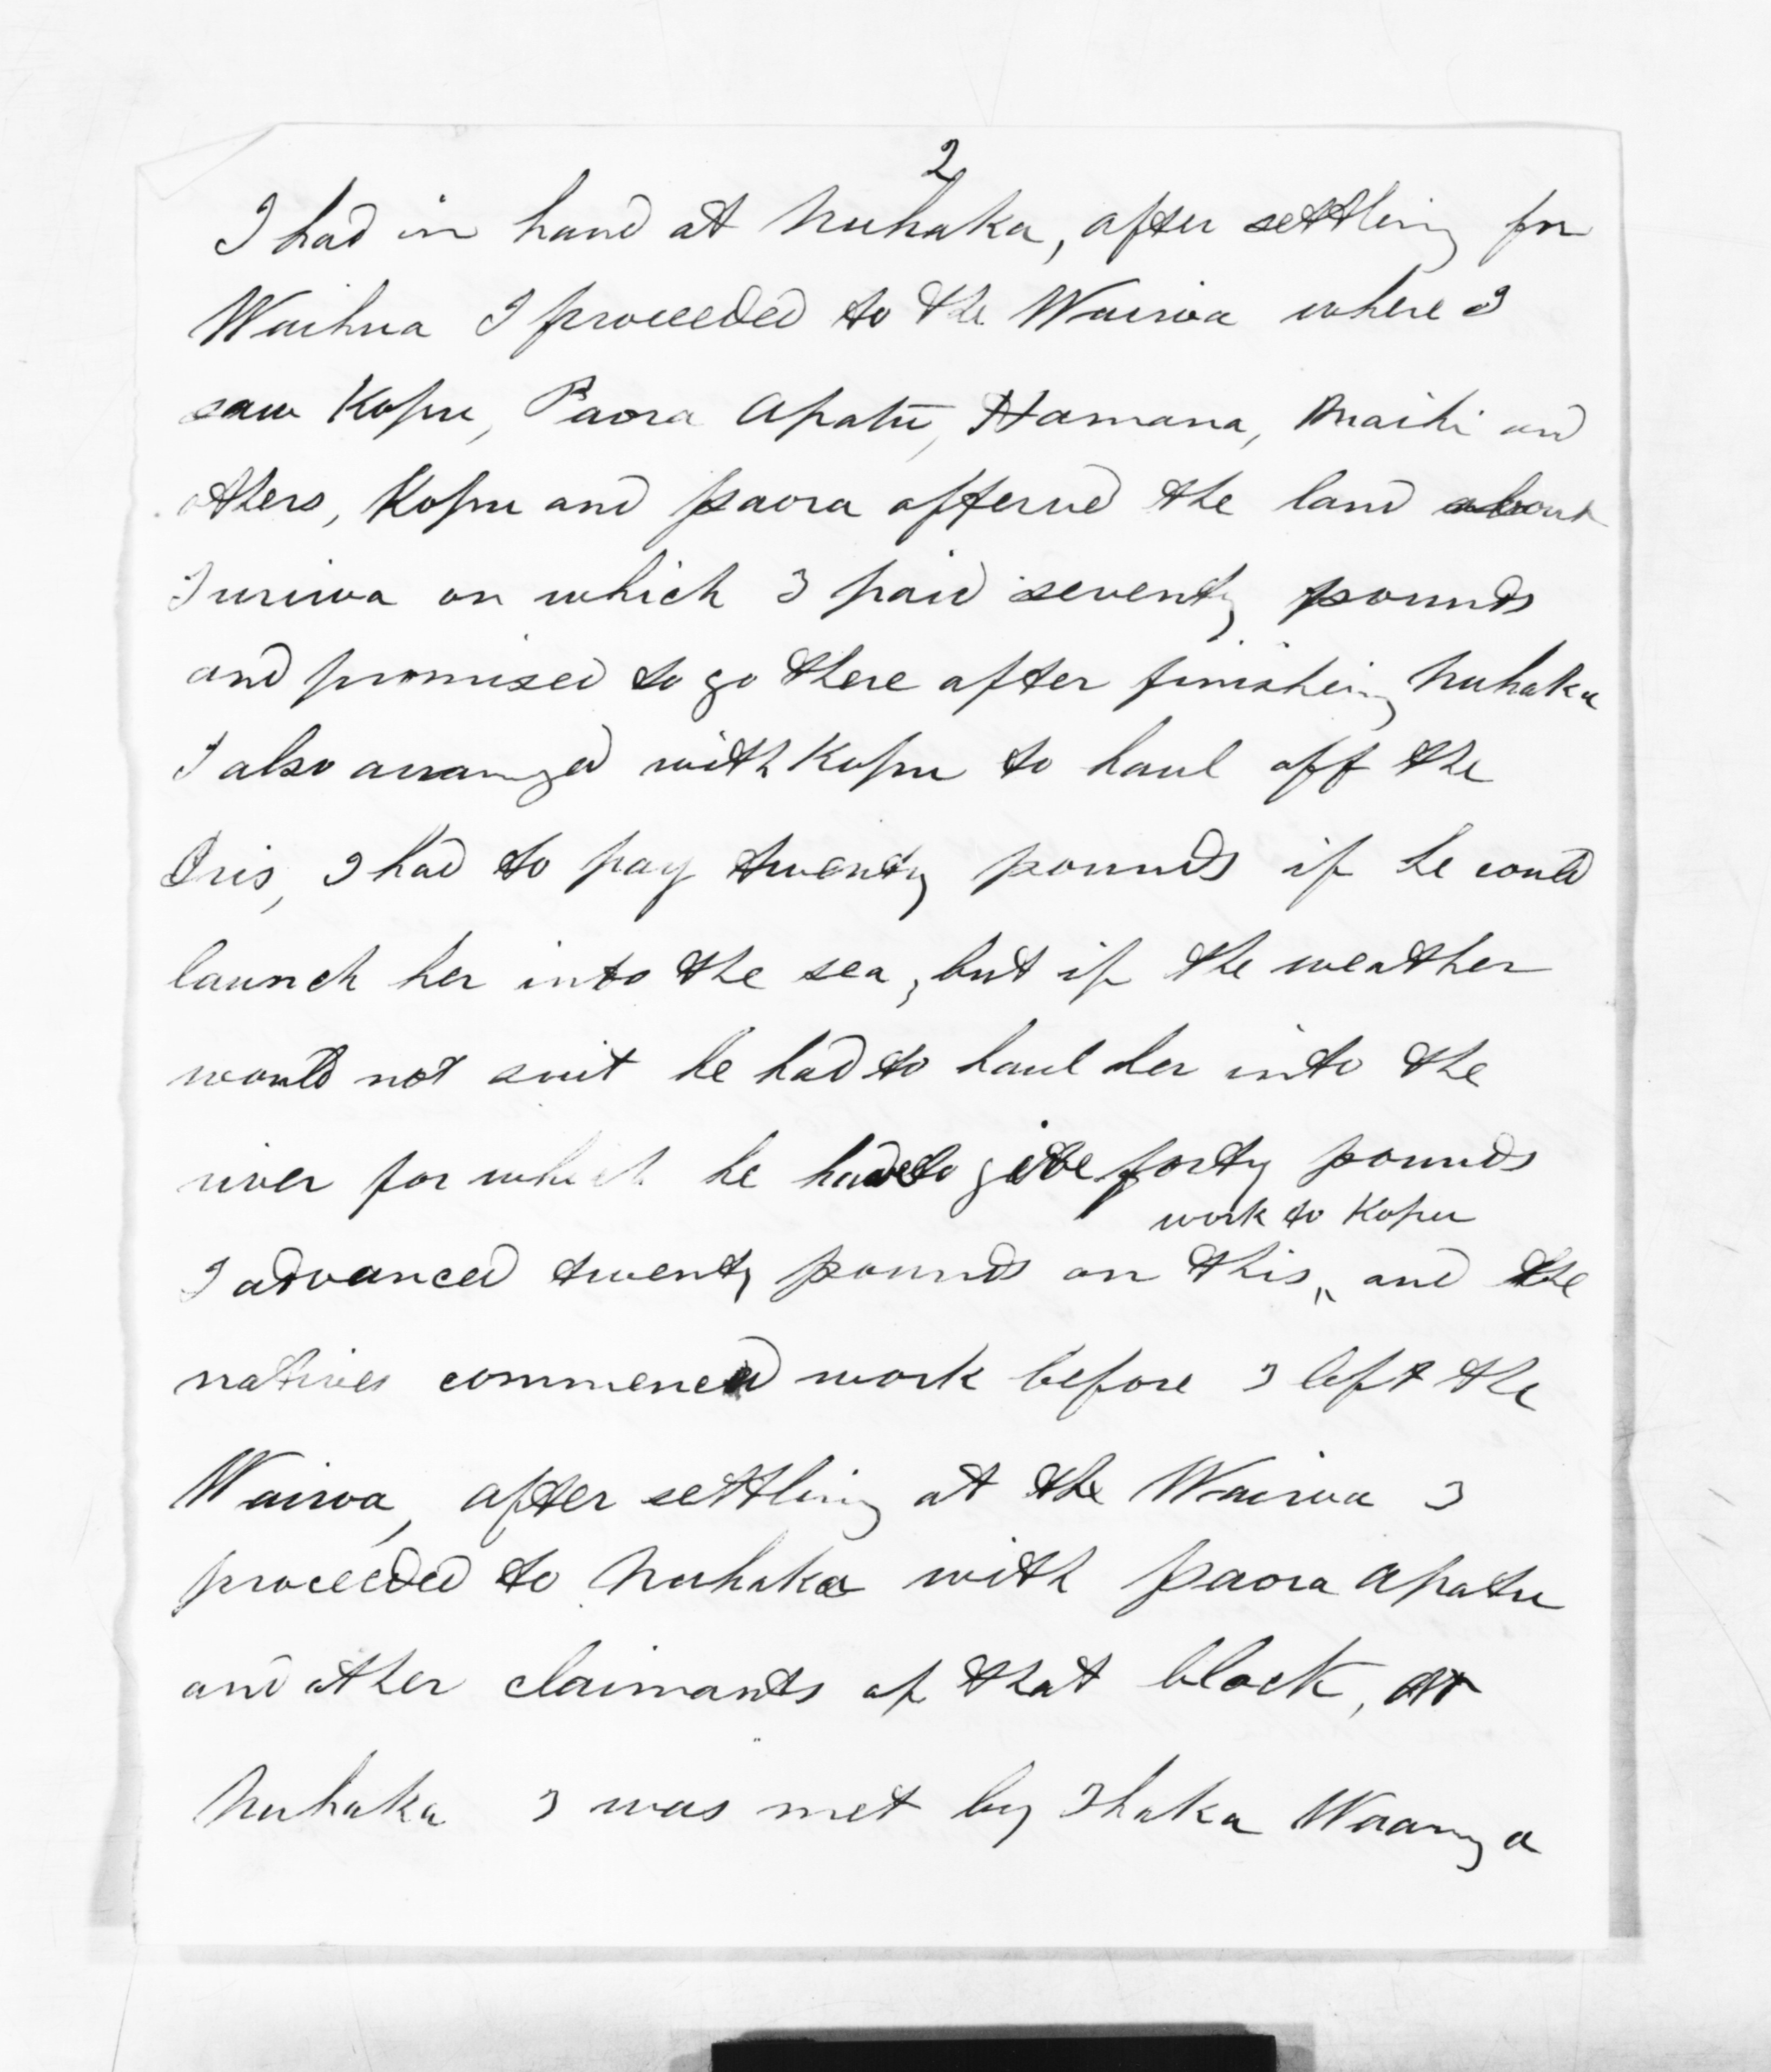 2
I had in hand at Nuhaka, after settling for
Waihua I proceeded to the Wairoa where I
saw Kopu, Paora Apatu, Hamana, Maihi and
others, Kopu and paora offered the land about
Turiroa on which I paid seventy pounds
and promised to go there after finishing Nuhaka
I also arranged with Kopu to haul off the
Iris, I had to pay twenty pounds if he could
launch her into the sea, but if the weather
would not suit he had to haul her into the
river for which he had to forty pounds
work to Kopu
I advanced twenty pounds on this, and the
natives commenced work before I left the
Wairoa, after settling at the Wairoa I
proceeded to Nuhaka with paora Apatu
and other claimants of that block, at
Nuhaka I was met by Ihaka Waanga